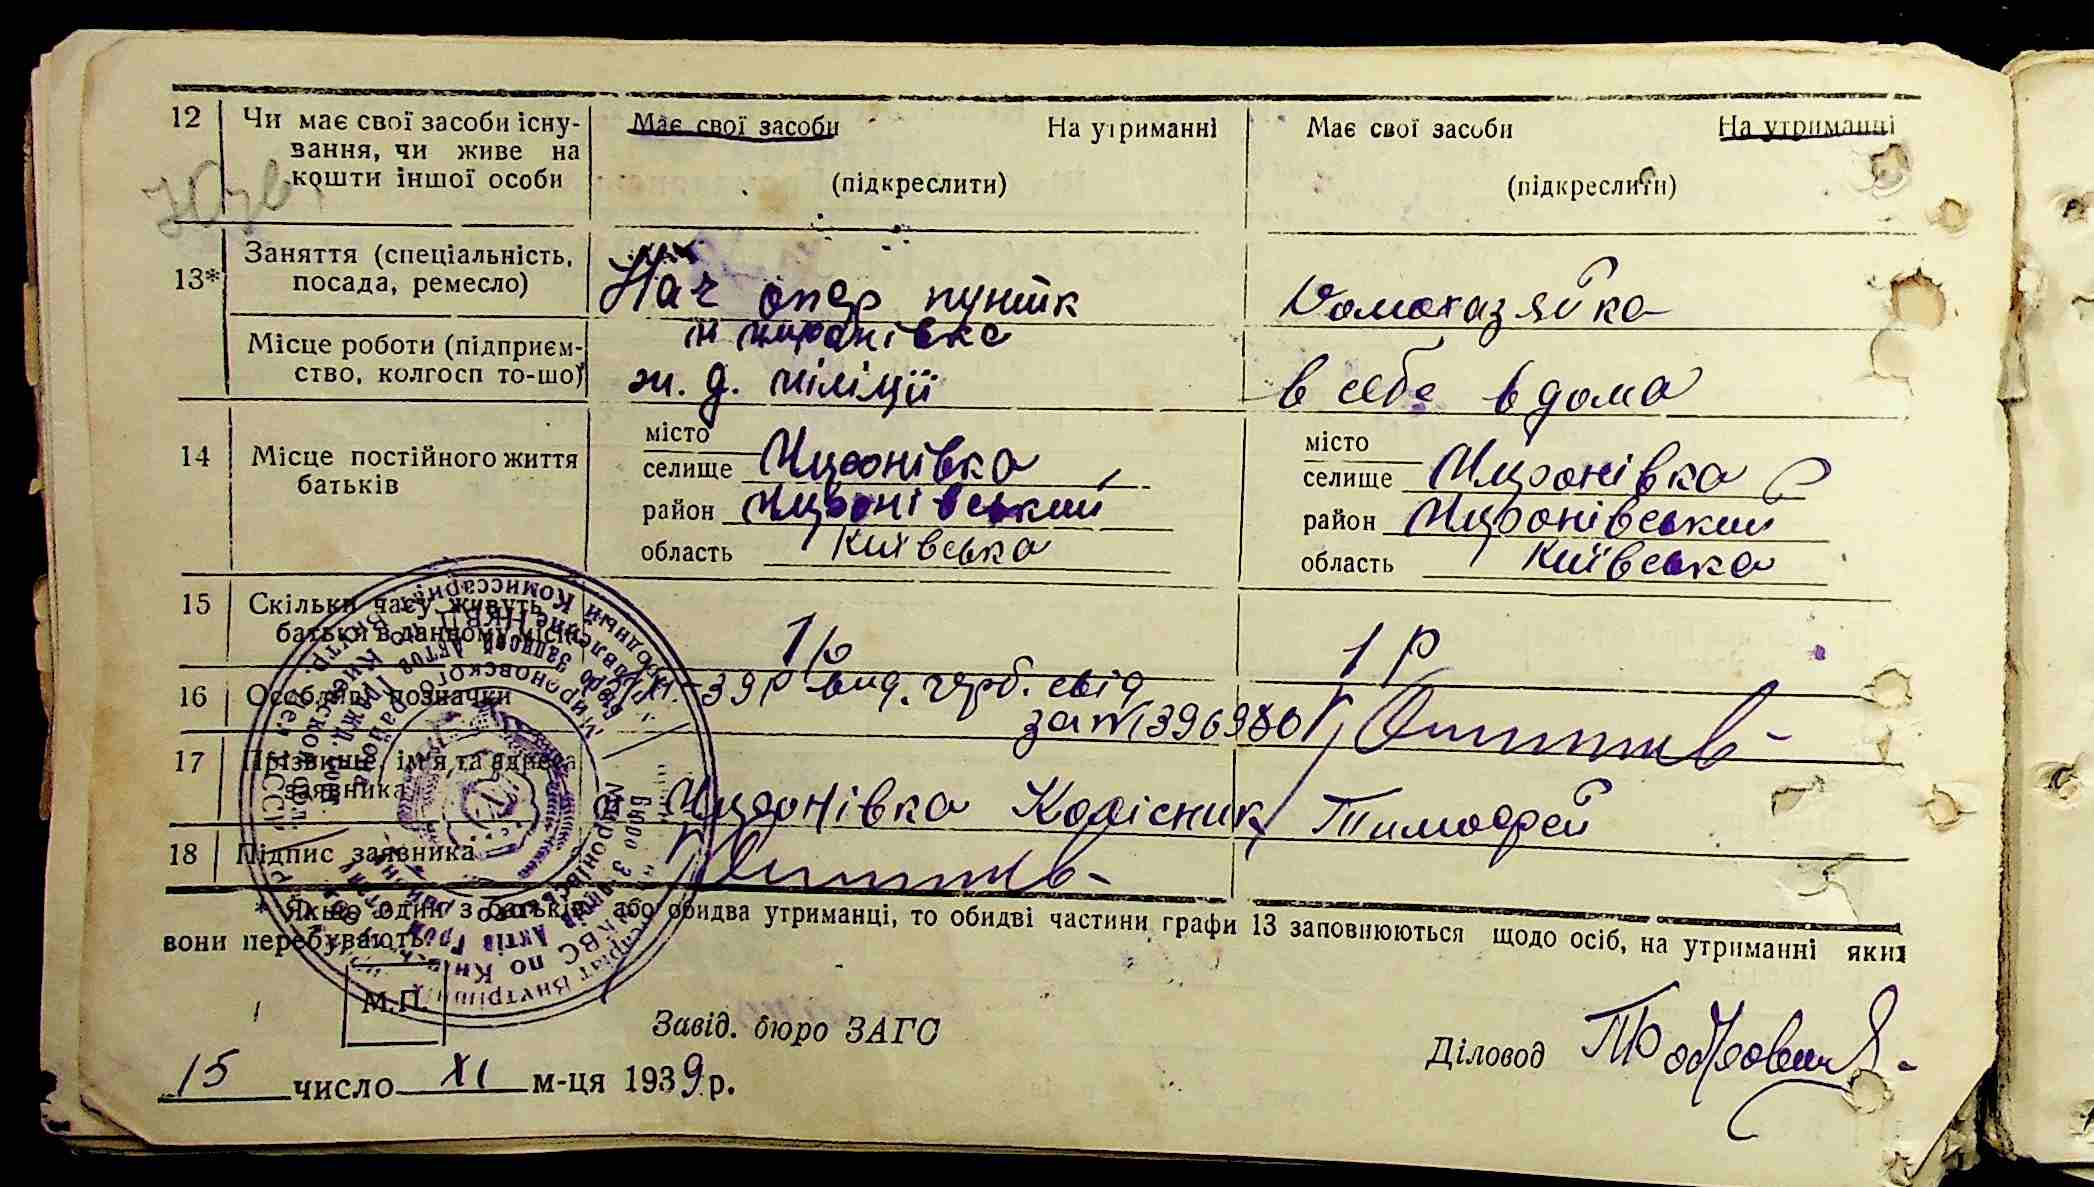 12 Чи має свої засоби існу- Має свої засоби На утриманні Має свої засоби На утриманні
вання, чи живе на
кошти іншої особи (підкреслити) (підкреслити)
13* Заняття (спеціальність, посада, ремесло) Нач опер пункт Домохазяйка
м Миронівка
Місце роботи (підприєм-
ство, колгосп то-що) ж. д. міліції в себе вдома
14 Місце постійного життя
батьків
місто місто
селище Миронівка селище Миронівка
район Миронівський район Миронівський
область Київська область Київська
15 Скільки часу живуть
батьки в данному місці 1 р 1 р
16 Особливі позначки 39 р вид. герб. свід
за № 1396980
17 Прізвище, ім'я та адреса
заявника Миронівка Колісник Тимофей
18 Підпис заявника
* Якщо один з батьків або обидва утриманці, то обидві частини графи 13 заповнюються щодо осіб, на утриманні яких
вони перебувають.
М.П.
Завід. бюро ЗАГС
Діловод
15 число XI м-ця 1939 р.